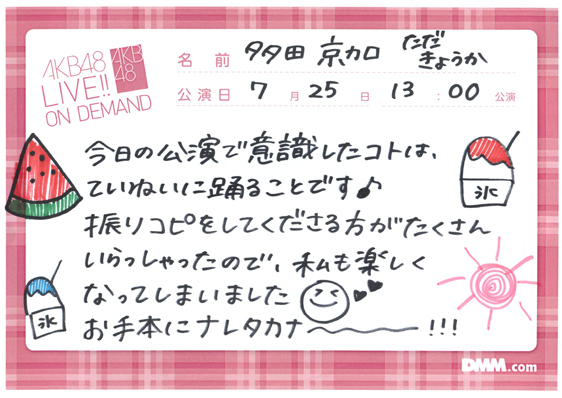 AKB48
LIVE!!
ON DEMAND
AKB
48
名前 多田 京加 ただ きょうか
公演日 7月25日 13:00公演
今日の公演で意識したコトは、
ていねいに踊ることです♪
振りコピをしてくださる方がたくさん
いらっしゃったので、私も楽しく
なってしまいました
お手本にナレタカナ〜!!!
氷
氷
DMM.com